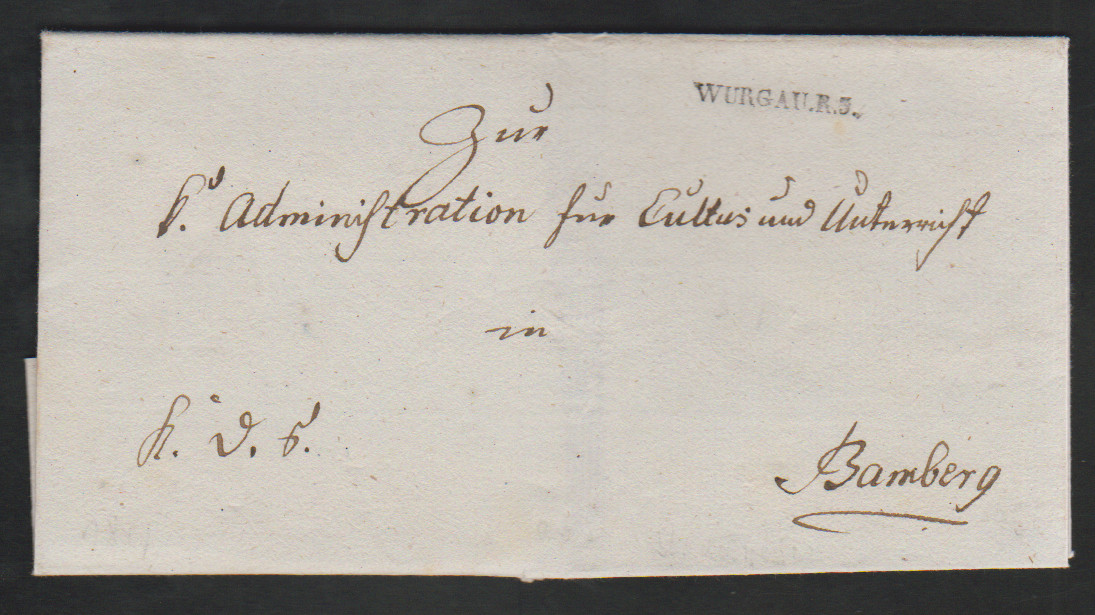 WURGAU.R.3.
Zur
k. Administration für Cultus und Unterricht
in
K. D. S.
Bamberg